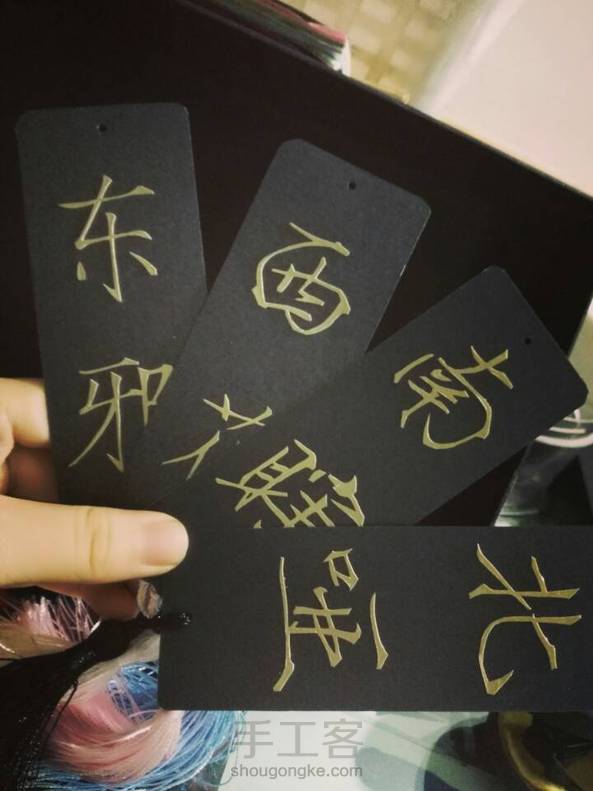 东邪
西
南
北哑
手工客
shougongke.com